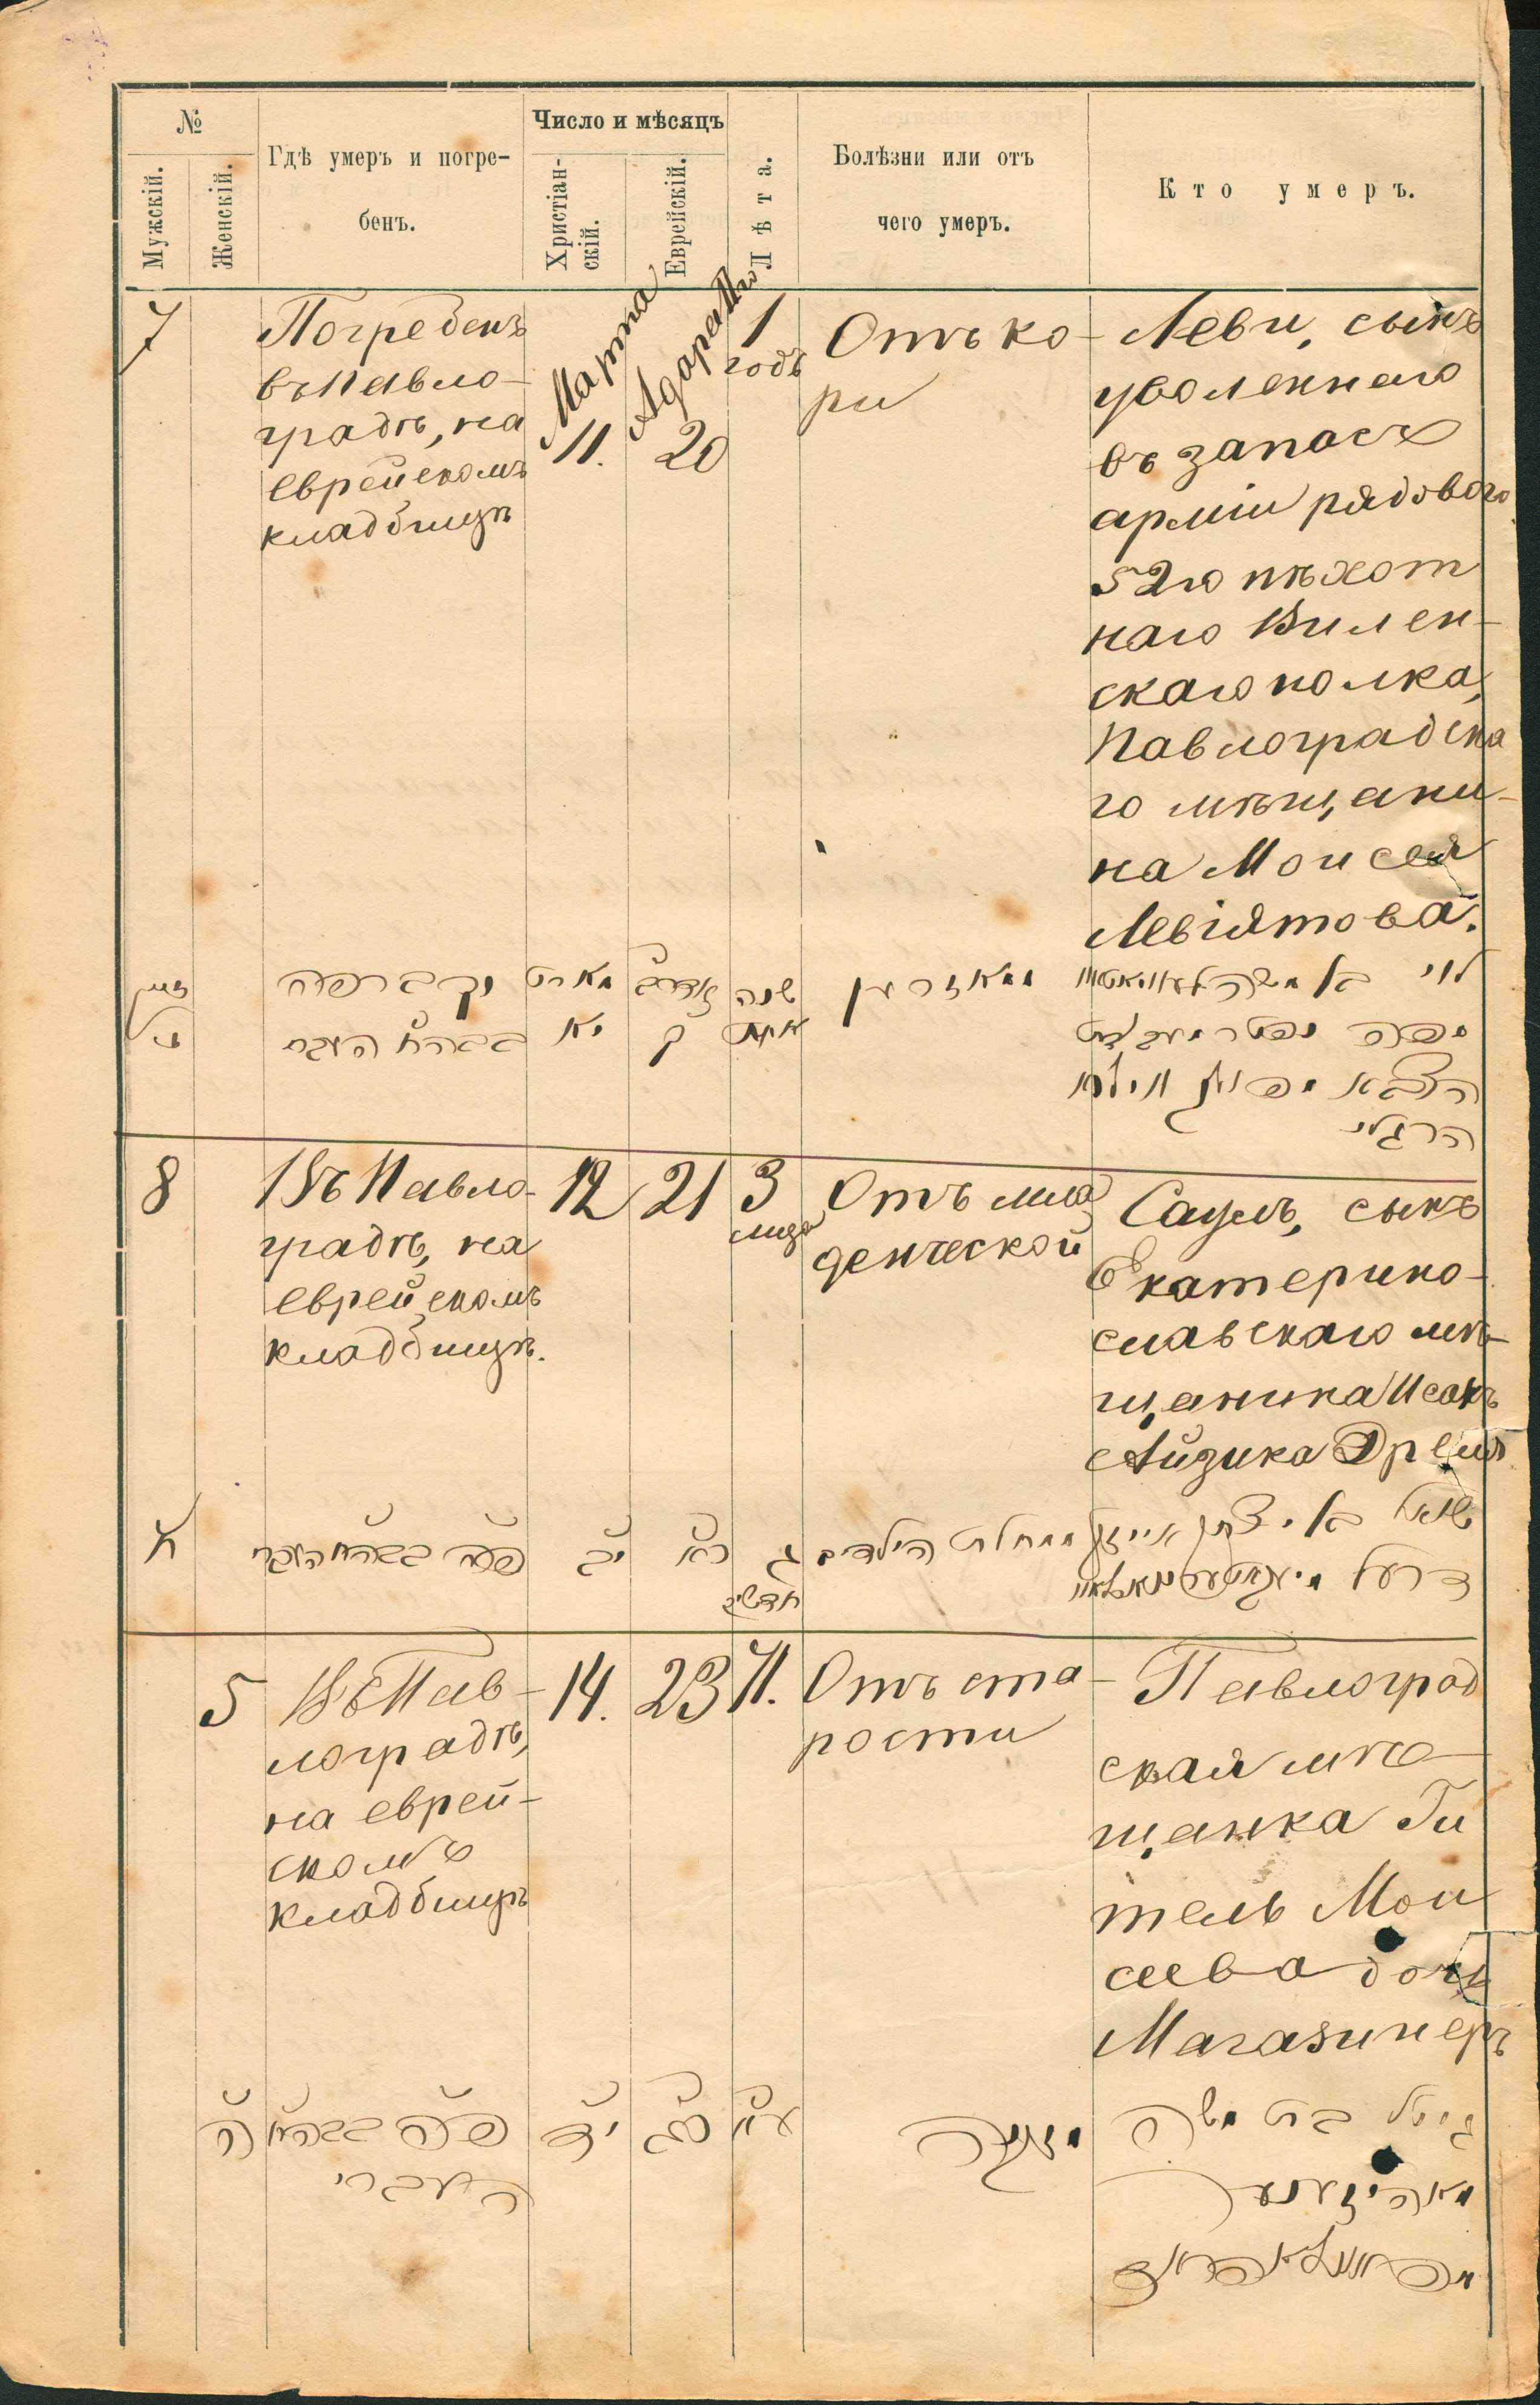 №
Мужскій.
Женскій.
Гдѣ умеръ и погре-
бенъ.
Число и мѣсяцъ
Христіан-
скій.
Еврейскій.
Лѣта.
Болѣзни или отъ
чего умеръ.
Кто умеръ.
7
Погребенъ
въ Павло-
градѣ, на
еврейскомъ
кладбищѣ
Марта
11.
Адара
20
1
годъ
Отъ ко-
ри
Леви, сынъ
уволеннаго
въ запасъ
арміи рядового
52го пѣхот
наго Вилен-
скаго полка,
Павлоградска
го мѣщани-
на Моисея
Левіятова.
שנה
מארט
יא
8
Въ Павло-
градѣ, на
еврейскомъ
кладбищѣ.
12
21
3
мѣца
Отъ мла
денческой
Саулъ, сынъ
Екатерино-
славскаго мѣ-
щанина Исакъ
Айзика Дреля
ח
פה בבהח העברי
יב
כא
ג
חדשים
ממחלת הילדים
5
Въ Пав-
лоградѣ,
на еврей-
скомъ
кладбищѣ
14.
23
71.
Отъ ста-
рости
Павлоград
ская мѣ-
щанка Ги
тель Мои
сеева дочь
Магазинеръ
ה
העברי
יד
כג
עא
מזקנה
גיטל בת משה